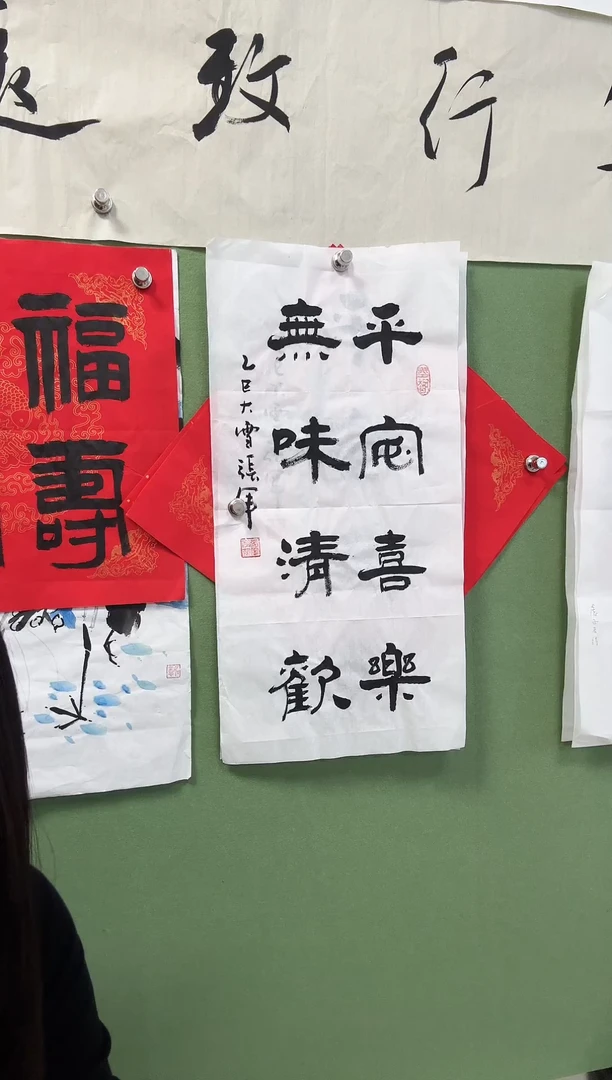 行致遠
福壽
平安喜樂
無味清歡
乙巳大雪張軍